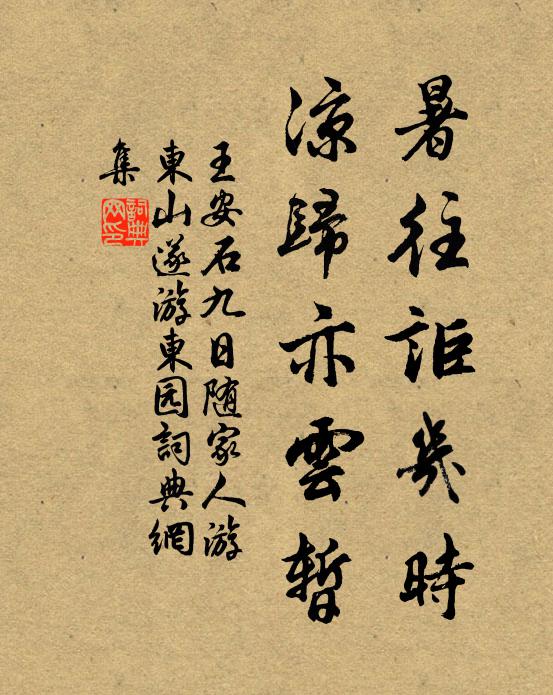 暑往詎幾時
涼歸亦雲暫
王安石九日随家人游
東山遂游東园詞典網
集
詞典網印